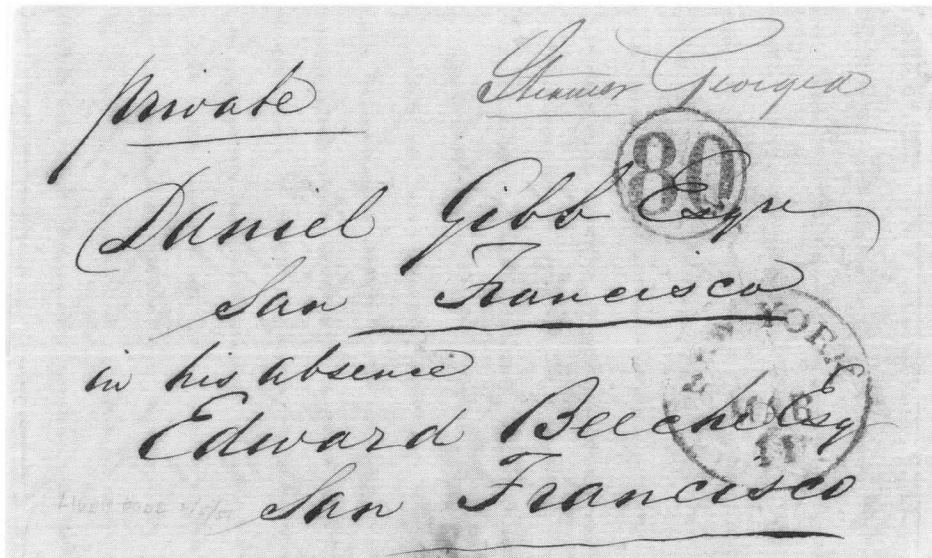 private Steamer Georgia
80
Daniel Gibb Esqre
San Francisco
in his absence
Edward Beeche Esq
San Francisco
NEW YORK
MAR
11